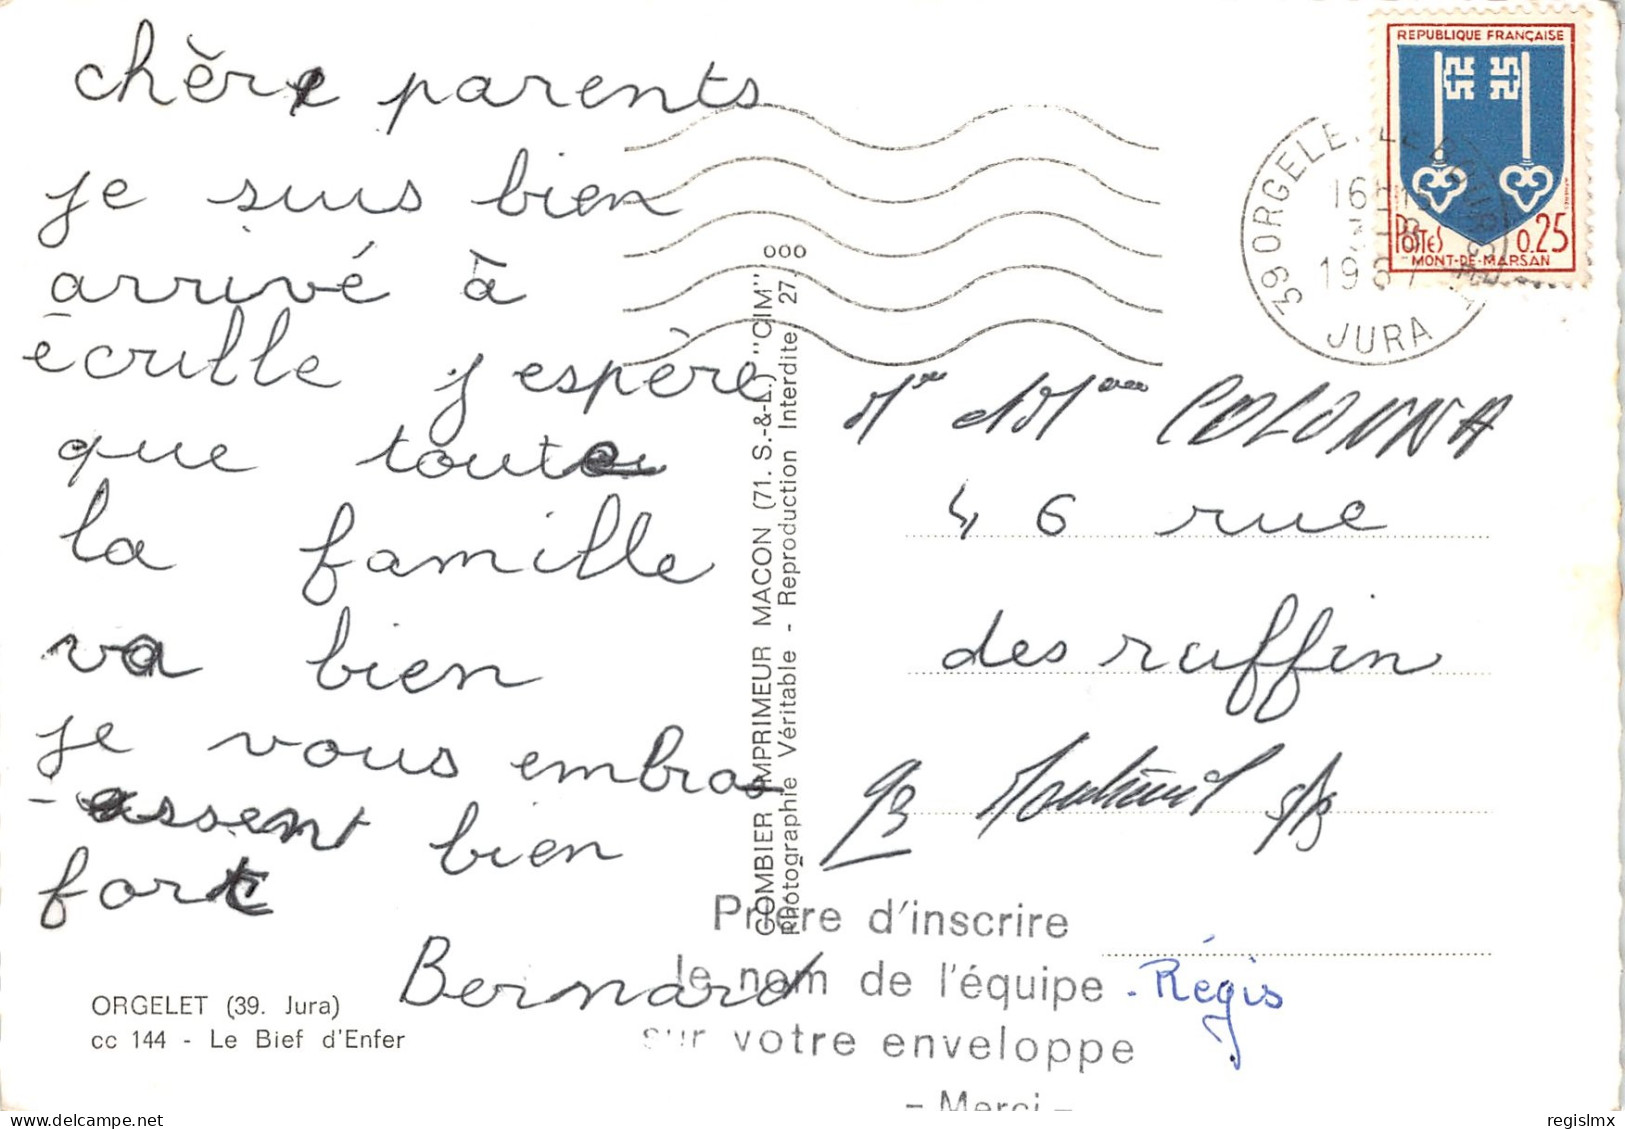 chère parents
je suis bien
arrivé à
écrille j espère
que toute
la famille
va bien
je vous embra
- assent bien
fort
Bernard
ORGELET (39. Jura)
cc 144 - Le Bief d'Enfer
COMBIER IMPRIMEUR MACON (71. S.-&-L.) "CIM"
Photographie Véritable - Reproduction Interdite 27.
ooo
REPUBLIQUE FRANÇAISE
POSTES 0.25
MONT-DE-MARSAN
39 ORGELET
16H15
1967
JURA
Mr et Mme COLONNA
46 rue
des ruffin
93 Montreuil s/B
Prière d'inscrire
le nom de l'équipe - Régis
sur votre enveloppe
- Merci -
regislmx